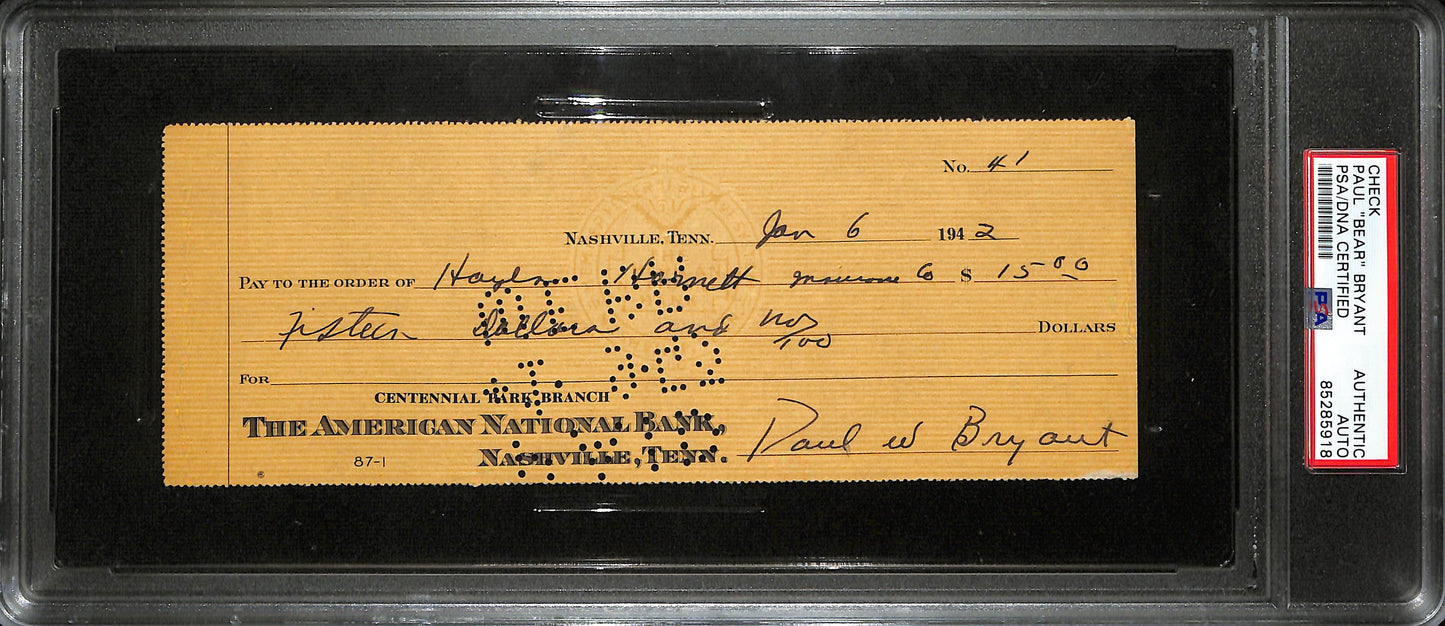 No. 41
NASHVILLE, TENN. Jan 6 1942
PAY TO THE ORDER OF $ 15 00
Fifteen dollars and no/100 DOLLARS
FOR
CENTENNIAL PARK BRANCH
THE AMERICAN NATIONAL BANK,
87-1 NASHVILLE, TENN.
Paul W Bryant
CHECK
PAUL "BEAR" BRYANT AUTHENTIC
PSA/DNA CERTIFIED AUTO
85285918
PSA